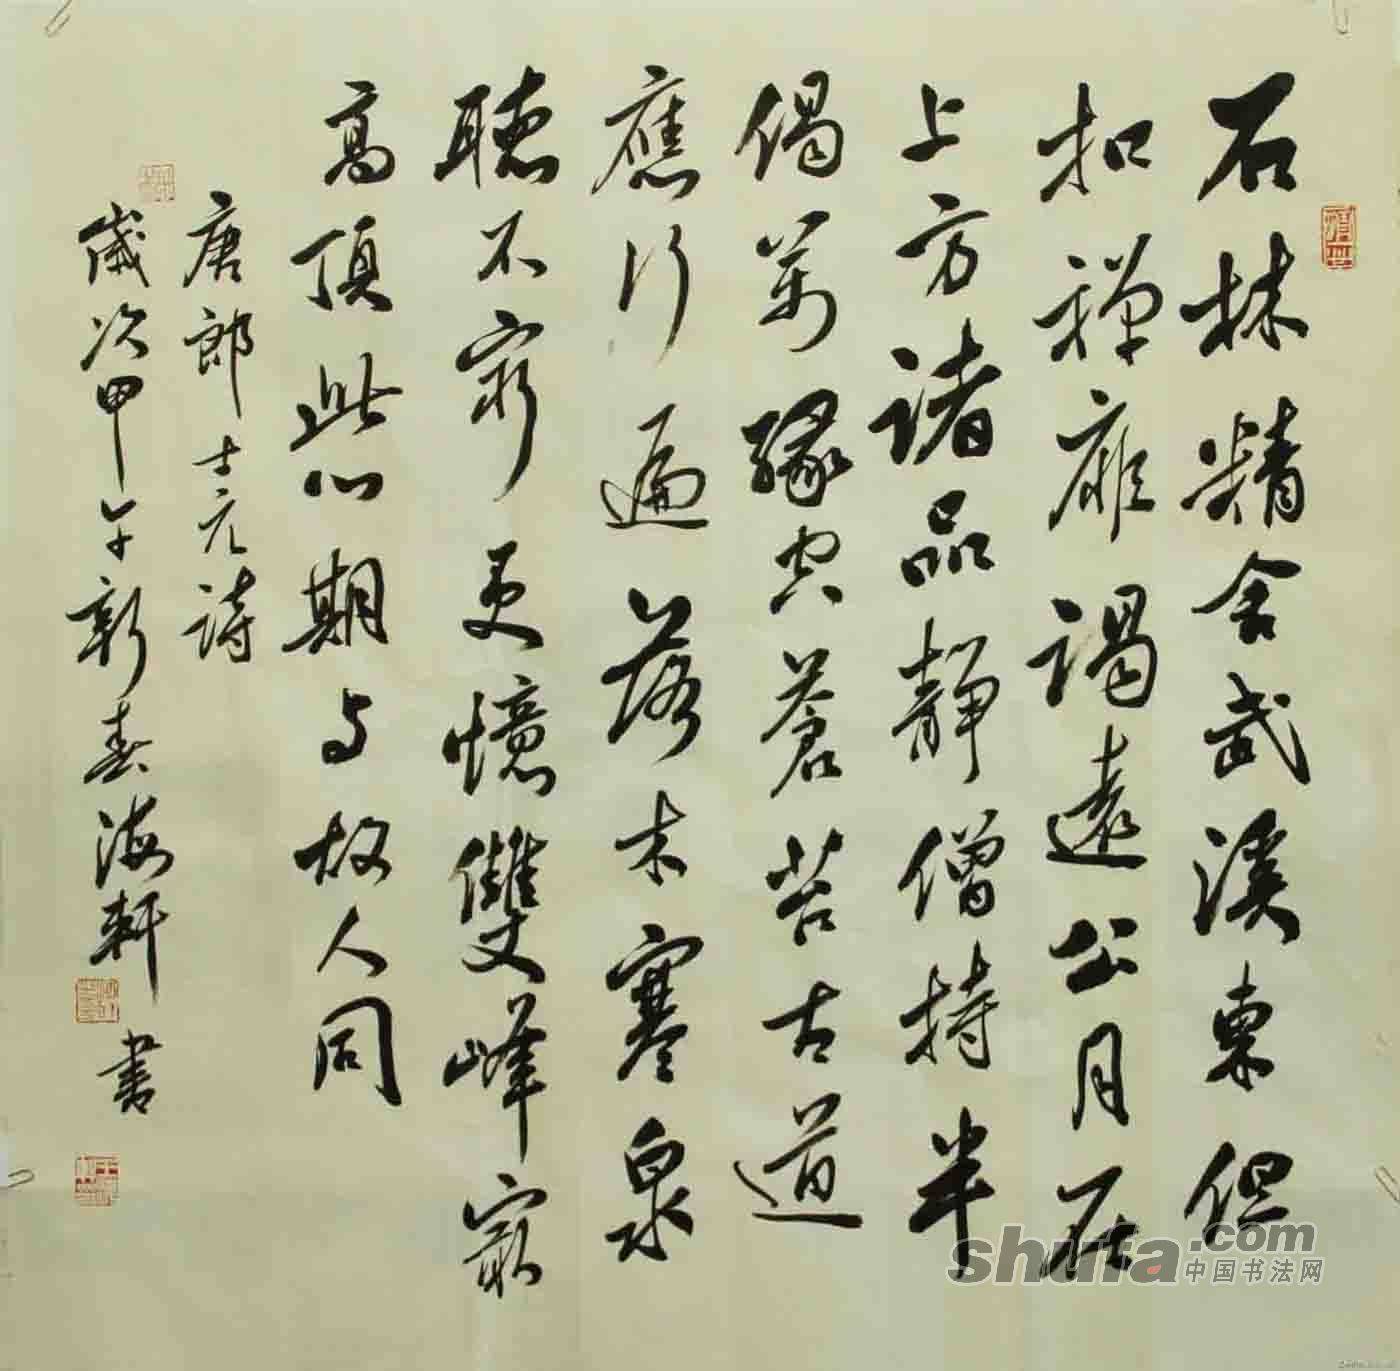 石林精舍武溪東但
扣禪扉謁遠公月在
上方諸品靜僧持半
偈萬緣空蒼苔古道
應行遍落木寒泉
聽不窮更憶雙峰最
高頂此心期与故人同
唐郎士元詩
歲次甲午新春海軒書
shufa.com
中国书法网